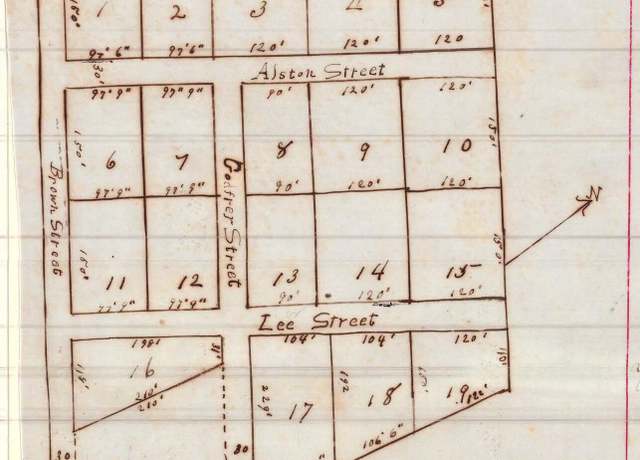 180' 1 2 3 4 5
97' 6" 97' 6" 120' 120' 120
30'
Alston Street
97' 9" 97' 9" 90' 120' 120'
150' 6 7 8 9 10 150'
97' 9" 97' 9" 90' 120' 120'
Brown Street
Godfrey Street
N
150' 11 12 13 14 15 150'
97' 9" 97' 9" 90' 120' 120'
Lee Street
198' 31' 104' 104' 120' 110'
119' 16 192
210' 229' 17 18 19 122'
210'
106' 6"
30 30